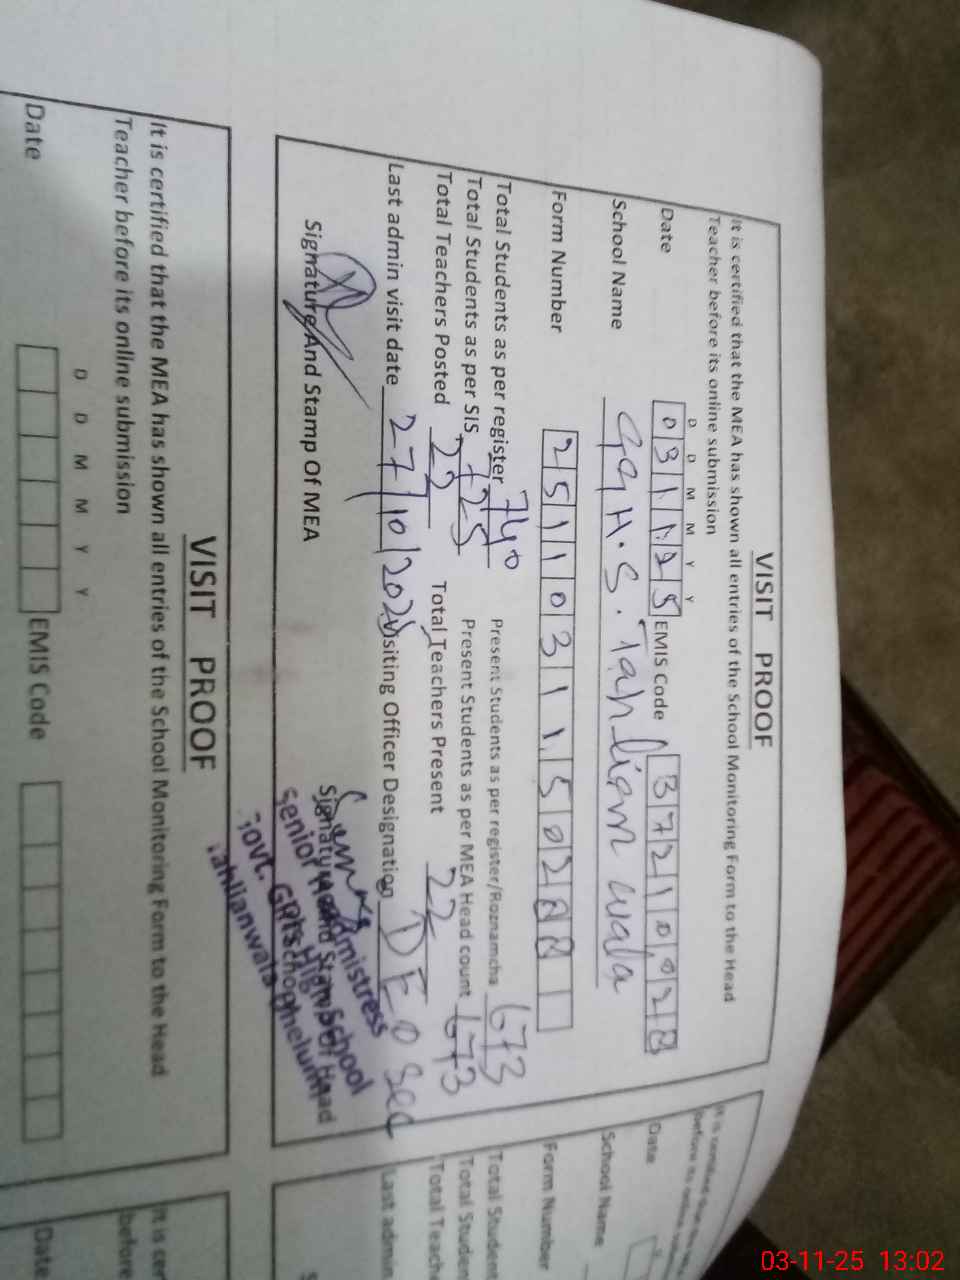 VISIT PROOF
It is certified that the MEA has shown all entries of the School Monitoring Form to the Head
Teacher before its online submission
D D M M Y Y
Date 031125 EMIS Code 37210028
School Name GGH.S. Tahlian wala
Form Number 251103115028
Total Students as per register 740 Present Students as per register/Roznamcha 673
Total Students as per SIS 725 Present Students as per MEA Head count 673
Total Teachers Posted 22 Total Teachers Present 22
Last admin visit date 27/10/2025 Visiting Officer Designation DEO Sec
Signature And Stamp Of MEA Signature And Stamp Of Head
Senior Headmistress
Govt. Girls High School
Tahlianwala Jhelum
VISIT PROOF
It is certified that the MEA has shown all entries of the School Monitoring Form to the Head
Teacher before its online submission
D D M M Y Y
Date EMIS Code
It is certified that the
before its online
Date
School Name
Form Number
Total Student
Total Studen
Total Teach
Last admin
S
It is cer
before
Date
03-11-25 13:02